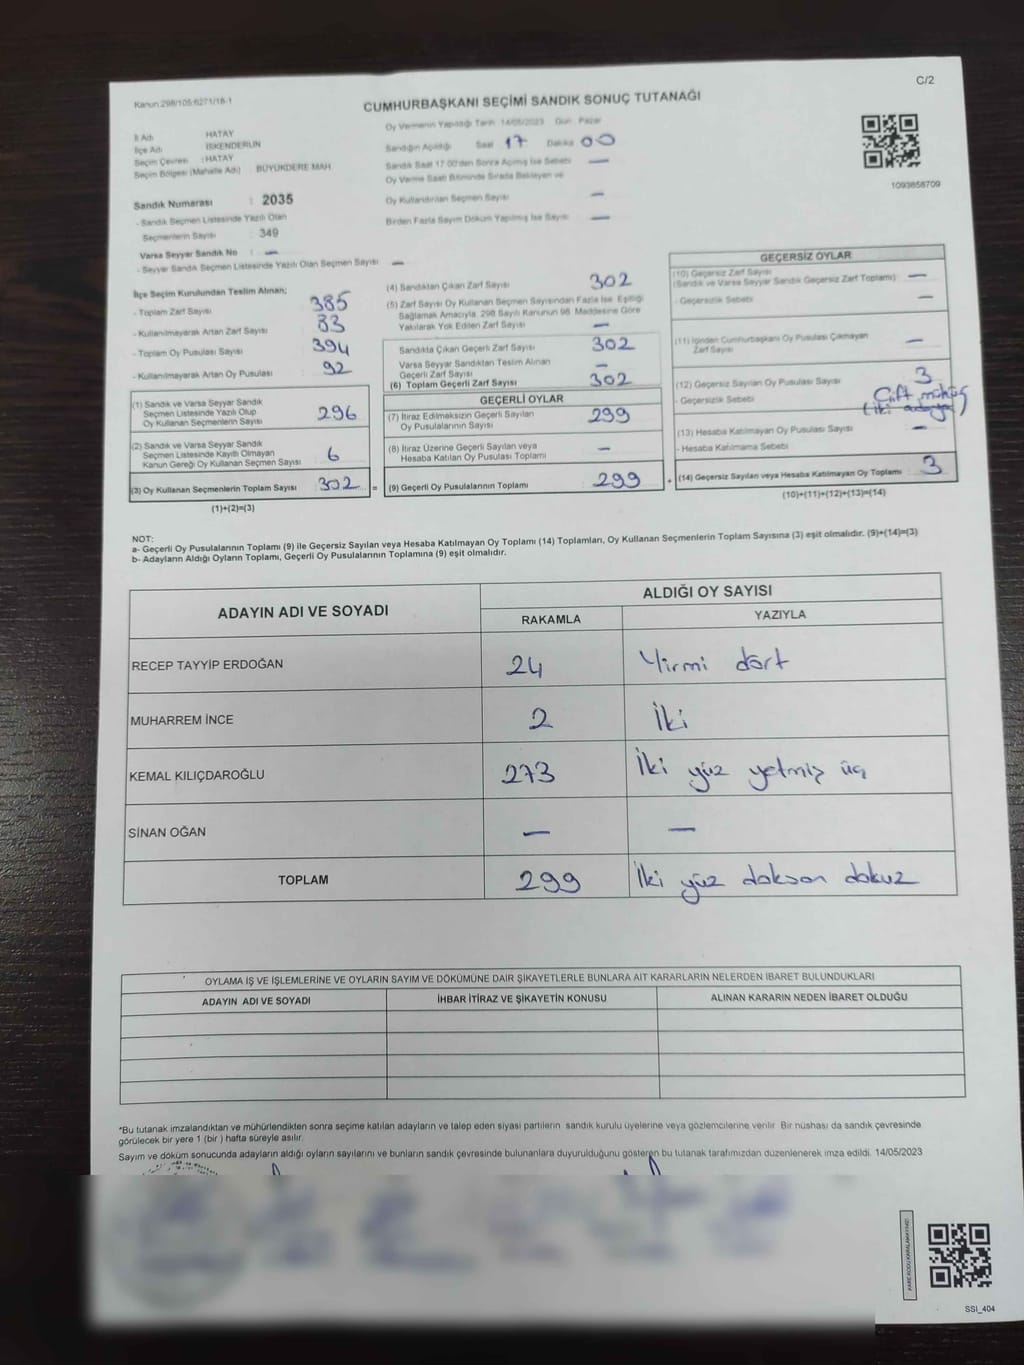 C/2
Kanun:298/105;6271/18-1
CUMHURBAŞKANI SEÇİMİ SANDIK SONUÇ TUTANAĞI
İl Adı : HATAY
İlçe Adı : İSKENDERUN
Seçim Çevresi : HATAY
Seçim Bölgesi (Mahalle Adı) : BÜYÜKDERE MAH.
Sandık Numarası : 2035
- Sandık Seçmen Listesinde Yazılı Olan
Seçmenlerin Sayısı : 349
Varsa Seyyar Sandık No : —
- Seyyar Sandık Seçmen Listesinde Yazılı Olan Seçmen Sayısı —
Oy Vermenin Yapıldığı Tarih 14/05/2023 Gün Pazar
Sandığın Açıldığı Saat 17 Dakika 00
Sandık Saat 17:00'den Sonra Açılmış İse Sebebi —
Oy Verme Saati Bitiminde Sırada Bekleyen ve
Oy Kullandırılan Seçmen Sayısı —
Birden Fazla Sayım Döküm Yapılmış İse Sayısı —
1093858709
İlçe Seçim Kurulundan Teslim Alınan;
- Toplam Zarf Sayısı 385
- Kullanılmayarak Artan Zarf Sayısı 83
- Toplam Oy Pusulası Sayısı 394
- Kullanılmayarak Artan Oy Pusulası 92
(1) Sandık ve Varsa Seyyar Sandık
Seçmen Listesinde Yazılı Olup
Oy Kullanan Seçmenlerin Sayısı 296
(2) Sandık ve Varsa Seyyar Sandık
Seçmen Listesinde Kayıtlı Olmayan
Kanun Gereği Oy Kullanan Seçmen Sayısı 6
(3) Oy Kullanan Seçmenlerin Toplam Sayısı 302 =
(1)+(2)=(3)
(4) Sandıktan Çıkan Zarf Sayısı 302
(5) Zarf Sayısı Oy Kullanan Seçmen Sayısından Fazla İse Eşitliği
Sağlamak Amacıyla, 298 Sayılı Kanunun 98. Maddesine Göre
Yakılarak Yok Edilen Zarf Sayısı —
Sandıkta Çıkan Geçerli Zarf Sayısı 302
Varsa Seyyar Sandıktan Teslim Alınan
Geçerli Zarf Sayısı —
(6) Toplam Geçerli Zarf Sayısı 302
GEÇERLİ OYLAR
(7) İtiraz Edilmeksizin Geçerli Sayılan
Oy Pusulalarının Sayısı 299
(8) İtiraz Üzerine Geçerli Sayılan veya
Hesaba Katılan Oy Pusulası Toplamı —
(9) Geçerli Oy Pusulalarının Toplamı 299 +
GEÇERSİZ OYLAR
(10) Geçersiz Zarf Sayısı
(Sandık ve Varsa Seyyar Sandık Geçersiz Zarf Toplamı) —
- Geçersizlik Sebebi —
(11) İçinden Cumhurbaşkanı Oy Pusulası Çıkmayan
Zarf Sayısı —
(12) Geçersiz Sayılan Oy Pusulası Sayısı 3
- Geçersizlik Sebebi Çift mühür
(iki adaya)
(13) Hesaba Katılmayan Oy Pusulası Sayısı —
- Hesaba Katılmama Sebebi
(14) Geçersiz Sayılan veya Hesaba Katılmayan Oy Toplamı 3
(10)+(11)+(12)+(13)=(14)
NOT:
a- Geçerli Oy Pusulalarının Toplamı (9) ile Geçersiz Sayılan veya Hesaba Katılmayan Oy Toplamı (14) Toplamları, Oy Kullanan Seçmenlerin Toplam Sayısına (3) eşit olmalıdır. (9)+(14)=(3)
b- Adayların Aldığı Oyların Toplamı, Geçerli Oy Pusulalarının Toplamına (9) eşit olmalıdır.
ADAYIN ADI VE SOYADI
ALDIĞI OY SAYISI
RAKAMLA YAZIYLA
RECEP TAYYİP ERDOĞAN 24 Yirmi dört
MUHARREM İNCE 2 İki
KEMAL KILIÇDAROĞLU 273 İki yüz yetmiş üç
SİNAN OĞAN — —
TOPLAM 299 İki yüz doksan dokuz
OYLAMA İŞ VE İŞLEMLERİNE VE OYLARIN SAYIM VE DÖKÜMÜNE DAİR ŞİKAYETLERLE BUNLARA AİT KARARLARIN NELERDEN İBARET BULUNDUKLARI
ADAYIN ADI VE SOYADI İHBAR İTİRAZ VE ŞİKAYETİN KONUSU ALINAN KARARIN NEDEN İBARET OLDUĞU
*Bu tutanak imzalandıktan ve mühürlendikten sonra seçime katılan adayların ve talep eden siyasi partilerin sandık kurulu üyelerine veya gözlemcilerine verilir. Bir nüshası da sandık çevresinde
görülecek bir yere 1 (bir ) hafta süreyle asılır.
Sayım ve döküm sonucunda adayların aldığı oyların sayılarını ve bunların sandık çevresinde bulunanlara duyurulduğunu gösteren bu tutanak tarafımızdan düzenlenerek imza edildi. 14/05/2023
SSI_404